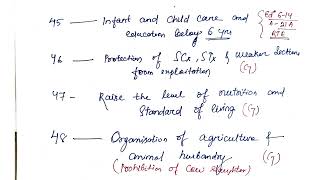 45 — Infant and child care and
education below 6 yrs
Ed 6-14
A-21A
RTE
46 — Protection of SCs, STs & weaker Sections
from exploitation (G)
47 - Raise the level of nutrition and
Standard of living (G)
48 — Organisation of agriculture &
animal husbandry (G)
(Prohibition of Cow slaughter)